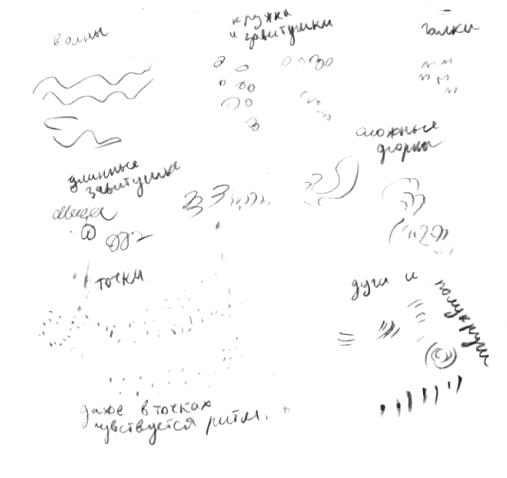 волны
кружки
и завитушки
галки
сложные
формы
длинные
завитушки
точки
дуги и полукруги
даже в точках
чувствуется ритм.